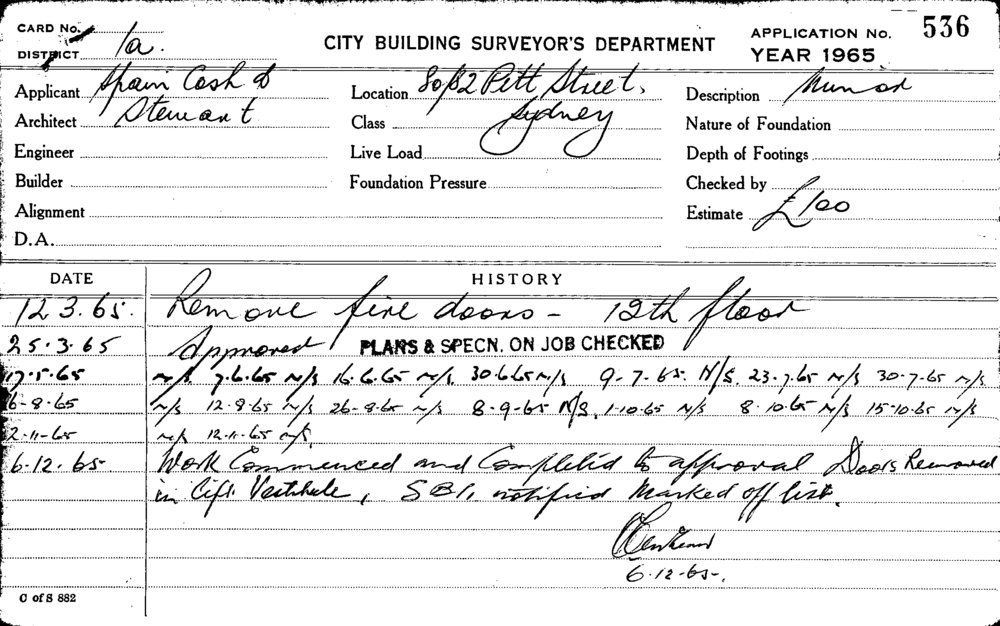 CARD No. CITY BUILDING SURVEYOR'S DEPARTMENT APPLICATION No. 536
DISTRICT 1a. YEAR 1965
Applicant Spain Cosh & Location 80/82 Pitt Street, Description Minor
Architect Stewart Class Sydney Nature of Foundation
Engineer Live Load Depth of Footings
Builder Foundation Pressure Checked by
Alignment Estimate £100
D.A.
DATE HISTORY
12.3.65. Remove fire doors - 12th floor
25.3.65 Approved PLANS & SPECN. ON JOB CHECKED
17.5.65 N/S. 7.6.65 N/S 16.6.65 N/S. 30.6.65 N/S 9.7.65. N/S. 23.7.65 N/S 30.7.65 N/S
6-8-65 N/S 12.8.65 N/S 26-8-65 N/S 8-9-65 N/S. 1-10-65 N/S 8-10-65 N/S 15-10-65 N/S
2-11-65 N/S 12-11-65 N/S.
6.12.65 Work Commenced and Completed to approval Doors Removed
in Lift Vestibule, S.B.I. notified Marked off list.
6-12-65.
C of S 882